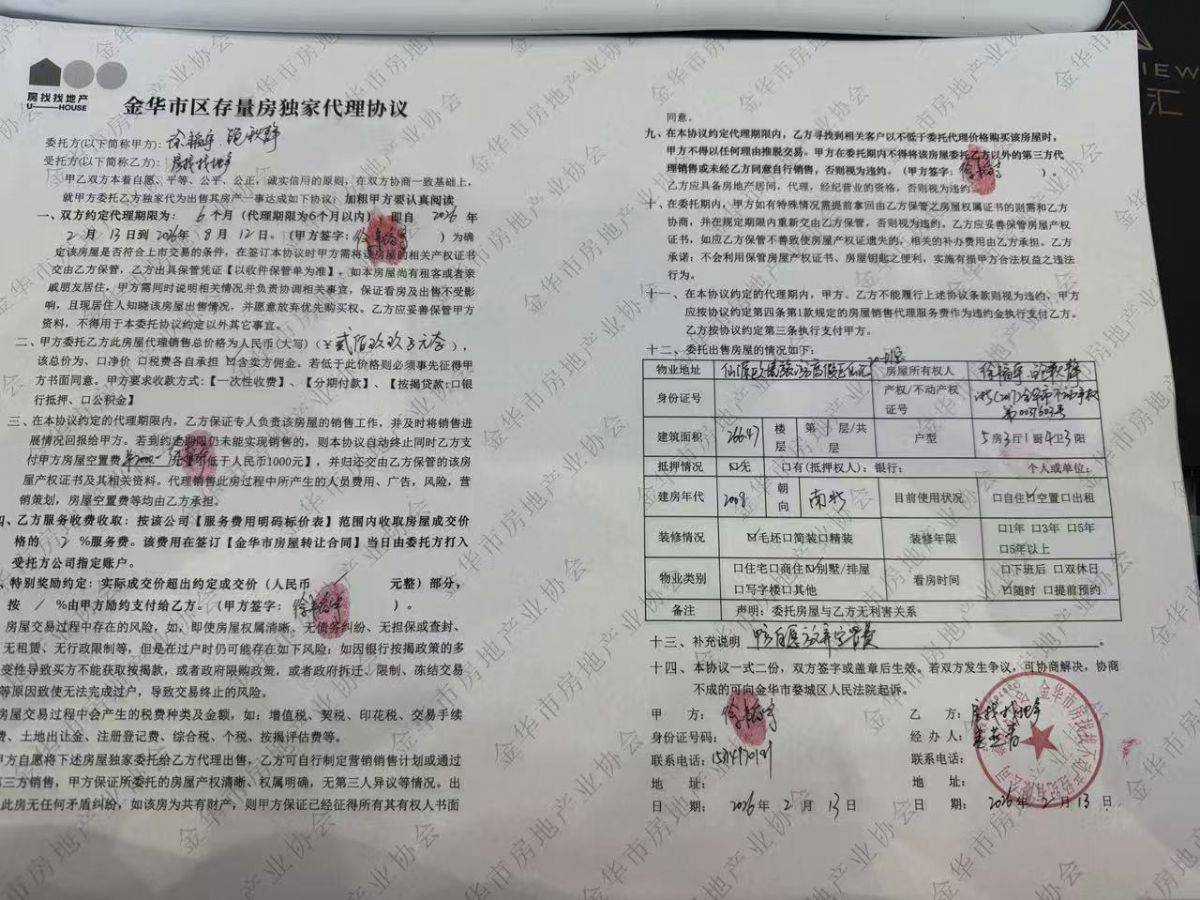 房找找地产
U——HOUSE
金华市区存量房独家代理协议
委托方(以下简称甲方):
受托方(以下简称乙方): 房找找地产
甲乙双方本着自愿、平等、公平、公正，诚实信用的原则，在双方协商一致基础上，
就甲方委托乙方独家代为出售其房产一事达成如下协议，加粗甲方要认真阅读
一、双方约定代理期限为： 6 个月（代理期限为6个月以内） 即自 2026 年
2 月 13 日到 2026 年 8 月 12 日。（甲方签字： ）为确
定该房屋是否符合上市交易的条件，在签订本协议时甲方需将该房屋的相关产权证书
交由乙方保管，乙方出具保管凭证【以收件保管单为准】，如本房屋尚有租客或者亲
戚朋友居住，甲方需同时说明相关情况并负责协调相关事宜，保证看房及出售不受影
响，且现居住人知晓该房屋出售情况，并愿意放弃优先购买权。乙方应妥善保管甲方
资料，不得用于本委托协议约定以外其它事宜。
二、甲方委托乙方此房屋代理销售总价格为人民币(大写)（￥ ），
该总价为、口净价 口税费各自承担 口含卖方佣金。若低于此价格则必须事先征得甲
方书面同意。甲方要求收款方式：【一次性收费】、【分期付款】、【按揭贷款:口银
行抵押、口公积金】
三、在本协议约定的代理期限内，乙方保证专人负责该房屋的销售工作，并及时将销售进
展情况回报给甲方。若到约定期限仍未能实现销售的，则本协议自动终止同时乙方支
付甲方房屋空置费 低于人民币1000元】，并归还交由乙方保管的该房
屋产权证书及其相关资料。代理销售此房过程中所产生的人员费用、广告，风险，营
销策划，房屋空置费等均由乙方承担。
四、乙方服务收费收取：按该公司【服务费用明码标价表】范围内收取房屋成交价
格的 2 %服务费。该费用在签订【金华市房屋转让合同】当日由委托方打入
受托方公司指定账户。
、特别奖励约定：实际成交价超出约定成交价（人民币 / 元整）部分，
按 / %由甲方励约支付给乙方。（甲方签字： ）。
房屋交易过程中存在的风险，如，即使房屋权属清晰、无债务纠纷、无担保或查封、
无租赁、无行政限制等，但是在过户时仍可能存在如下风险：如因银行按揭政策的多
变性导致买方不能获取按揭款，或者政府限购政策。或者政府拆迁、限制、冻结交易
等原因致使无法完成过户，导致交易终止的风险。
房屋交易过程中会产生的税费种类及金额，如：增值税、契税、印花税、交易手续
费、土地出让金、注册登记费、综合税、个税、按揭评估费等。
甲方自愿将下述房屋独家委托给乙方代理出售，乙方可自行制定营销销售计划或通过
第三方销售，甲方保证所委托的房屋产权清晰、权属明确，无第三人异议等情况。出
此房无任何矛盾纠纷，如该房为共有财产，则甲方保证已经征得所有其有权人书面
同意。
九、在本协议约定代理期限内，乙方寻找到相关客户以不低于委托代理价格购买该房屋时，
甲方不得以任何理由推脱交易。甲方在委托期内不得将该房屋委托乙方以外的第三方代
理销售或未经乙方同意自行销售，否则视为违约。（甲方签字： ）。
乙方应具备房地产居间，代理，经纪营业的资格，否则视为违约
十、在委托期内，甲方如有特殊情况需提前拿回由乙方保管之房屋权属证书的则需和乙方
协商，并在规定期限内重新交由乙方保管，否则视为违约。乙方应妥善保管房屋产权
证书，如应乙方保管不善致使房屋产权证遗失的，相关的补办费用由乙方承担。乙方
承诺：不会利用保管房屋产权证书、房屋钥匙之便利，实施有损甲方合法权益之违法
行为。
十一、在本协议约定的代理期内，甲方、乙方不能履行上述协议条款则视为违约，甲方
应按协议约定第四条第1款规定的房屋销售代理服务费作为违约金执行支付乙方。
乙方按协议约定第三条执行支付甲方。
十二、委托出售房屋的情况如下：
物业地址 房屋所有权人
身份证号 产权/不动产权证号
建筑面积 266.47 楼层 第 1 层/共 层 户型 5房3厅1厨4卫3阳
抵押情况 口无 口有(抵押权人)：银行： 个人或单位:
建房年代 2008 朝向 南北 目前使用状况 口自住口空置口出租
装修情况 口毛坯口简装口精装 装修年限 口1年 口3年 口5年 口5年以上
物业类别 口住宅口商住口别墅/排屋 口写字楼口其他 看房时间 口下班后 口双休日 口随时 口提前预约
备注 声明：委托房屋与乙方无利害关系
十三、补充说明 甲方自愿放弃空置费 。
十四、本协议一式二份，双方签字或盖章后生效。若双方发生争议，可协商解决，协商
不成的可向金华市婺城区人民法院起诉。
甲 方： 乙 方：房找找地产
身份证号码： 经 办 人：
联系电话： 联系电话：
地 址： 地 址：
日 期： 2026年 2 月 13 日 日 期： 2026年 2 月 13 日
金华市房地产业协会